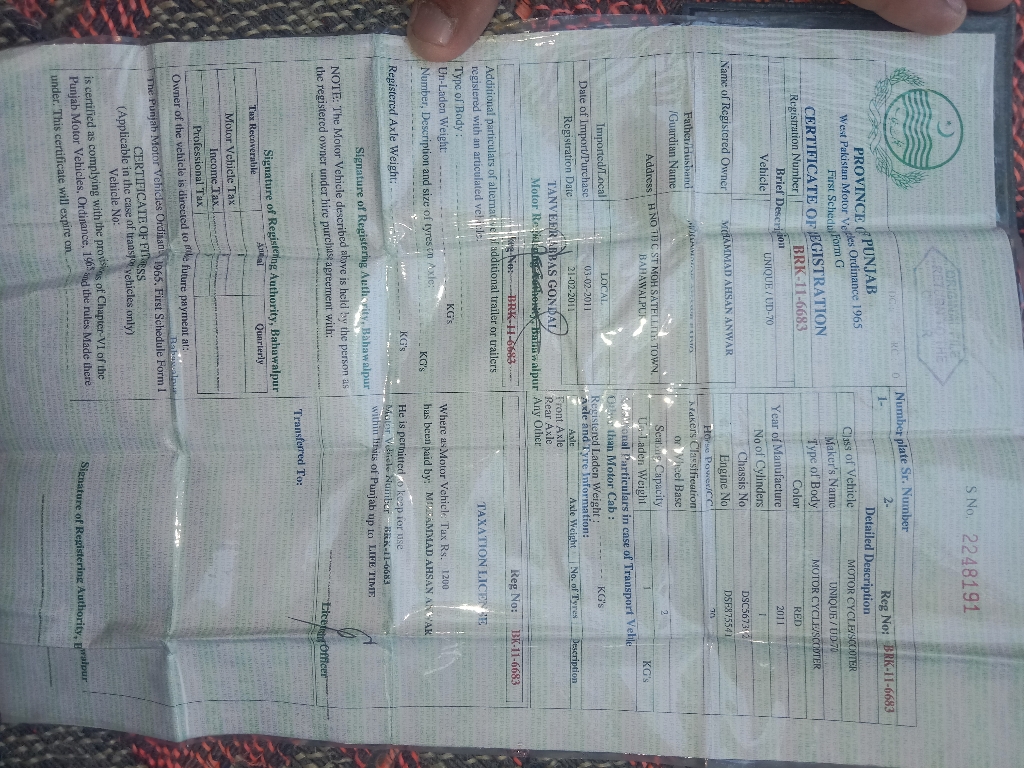 S No. 2248191
PROVINCE OF PUNJAB
West Pakistan Motor Vehicles Ordinance 1965
First Schedule Form G
CERTIFICATE OF REGISTRATION
Registration Number BRK-11-6683
Brief Description
Vehicle UNIQUE / UD-70
Name of Registered Owner MUHAMMAD AHSAN ANWAR
Father/Husband
/Guardian Name
Address H NO 10 C ST MOH SATELLITE TOWN,
BAHAWALPUR
Imported/Local LOCAL
Date of Import/Purchase 03-02-2011
Registration Date 21-02-2011
TANVEER ABBAS GONDAL
Motor Registering Authority, Bahawalpur
Reg No: BRK-11-6683
Additional particulars of alternative of additional trailer or trailers
registered with an articulated vehicle.
Type of Body :
Un-Laden Weight: KG's
Number, Description and size of tyres on Axle: KG's
Registered Axle Weight: KG's
Signature of Registering Authority, Bahawalpur
NOTE: The Motor Vehicle described above is held by the person as
the registered owner under hire purchase agreement with:
Signature of Registering Authority, Bahawalpur
Tax Recoverable Annual Quarterly
Motor Vehicle Tax
Income Tax
Professional Tax
Owner of the vehicle is directed to make future payment at:
Bahawalpur
The Punjab Motor Vehicles Ordinance 1965, First Schedule Form I
CERTIFICATE OF FITNESS
(Applicable in the case of transport vehicles only)
Vehicle No:
is certified as complying with the provisions of Chapter-VI of the
Punjab Motor Vehicles, Ordinance, 1965 and the rules Made there
under. This certificate will expire on
Number plate Sr. Number Reg No: BRK-11-6683
1- 2-
Detailed Description
Class of Vehicle MOTOR CYCLE/SCOOTER
Maker's Name UNIQUE / UD70
Type of Body MOTOR CYCLE/SCOOTER
Color RED
Year of Manufacture 2011
No of Cylinders 1
Chassis No
Engine No DSE875541
Horse Power/CC 70
Makers Classification
or Wheel Base
Seating Capacity 2
Un-Laden Weight 1 KG's
Additional Particulars in case of Transport Vehicle
Other than Motor Cab :
Registered Laden Weight : KG's
Axle and Tyre Information:
Axle Axle Weight No. of Tyres Description
Front Axle
Rear Axle
Any Other
Reg No: BRK-11-6683
TAXATION LICENCE
Where as Motor Vehicle Tax Rs. 1200
has been paid by: MUHAMMAD AHSAN ANWAR
He is permitted to keep for use
Motor Vehicle Number BRK-11-6683
within limits of Punjab up to LIFE TIME
Licence Officer
Transferred To:
Signature of Registering Authority, Bahawalpur